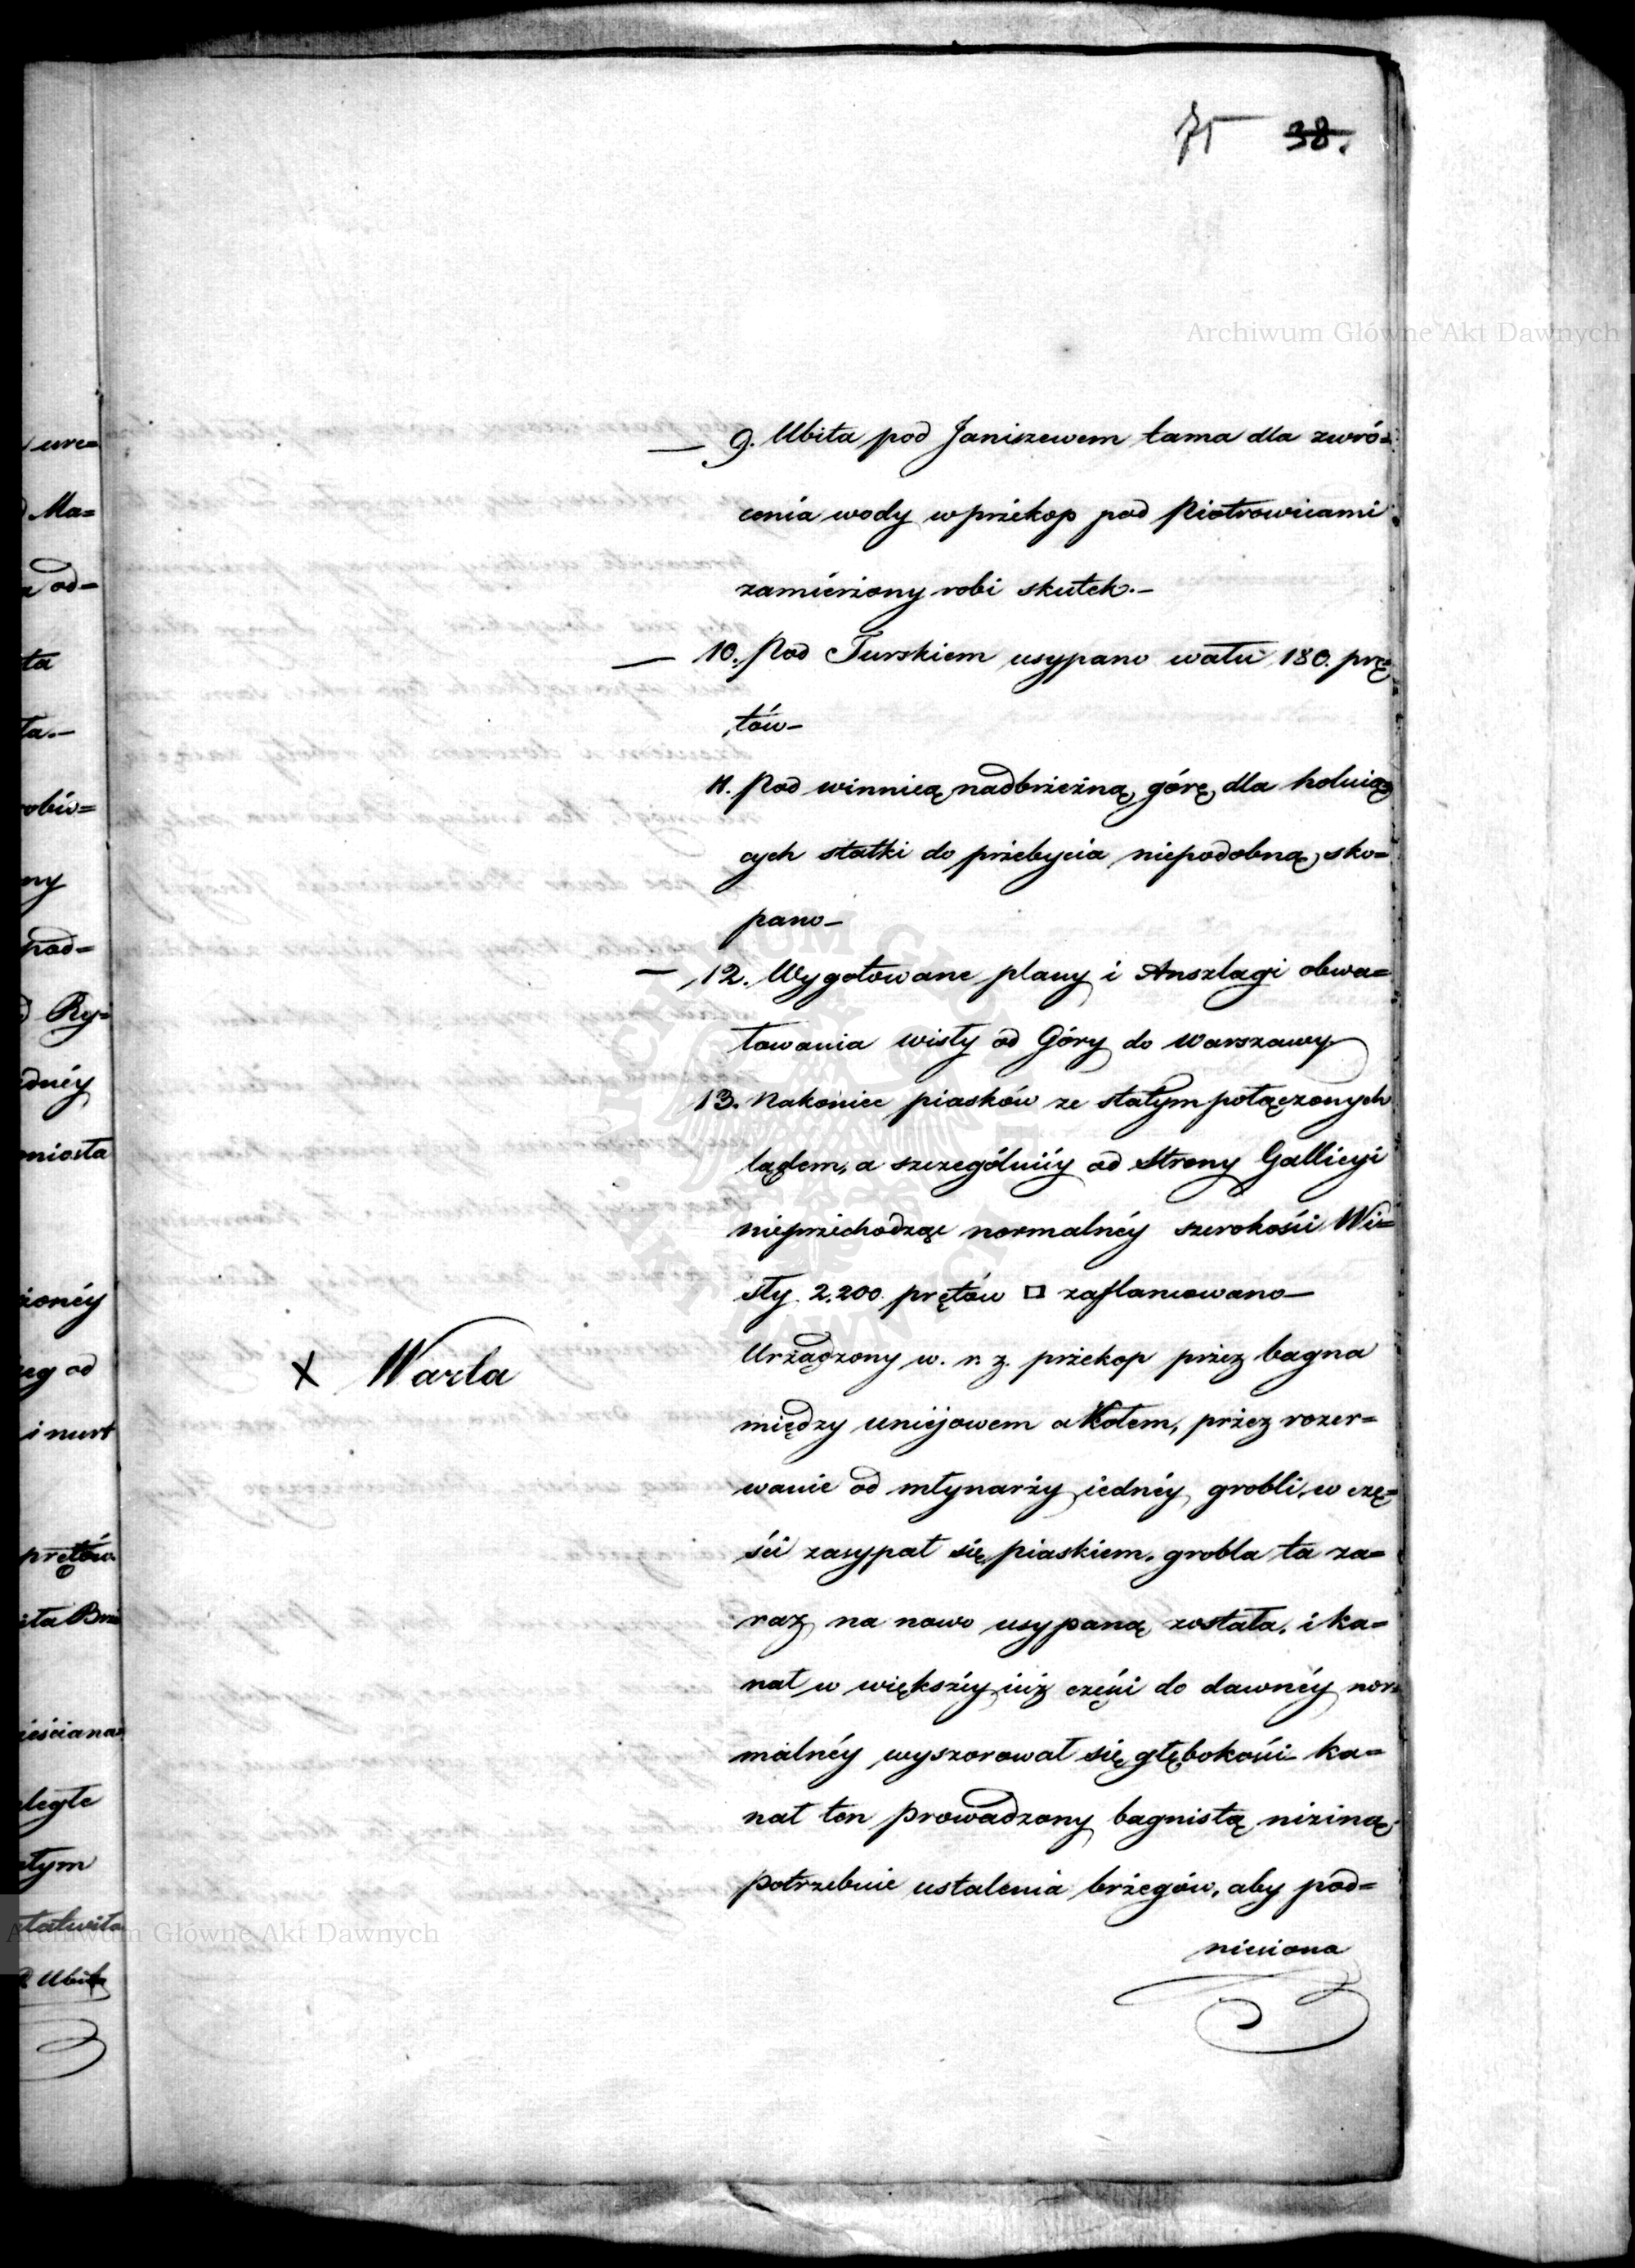 71 38.
Archiwum Główne Akt Dawnych
— 9. Ubita pod Janiszewem tama dla zwró=
cenia wody w przekop pod Piotrowicami
zamiérzony robi skutek.—
— 10. Pod Turskiem usypano wału 180. prę=
tów—
11. Pod winnicą nadbrzeżną górę dla holuią=
cych statki do przebycia niepodobną, sko=
pano—
— 12. Wygotowane plany i Anszlagi obwa=
łowania wisły od Góry do Warszawy
13. Nakoniec piasków ze stałym połączonych
lądem, a szczególniéy od Strony Gallicyi
nieprzechodząc normalnéy szerokości Wi=
sły 2,200 prętów □ zaflancowano—
X Warta
Urządzony w. r. z. przekop przez bagna
między Uniejowem a Kołem, przez rozer=
wanie od młynarzy iednéy grobli, w czę=
ści zasypał się piaskiem. grobla ta za=
raz na nowo usypaną została, i ka=
nał w większéy iuż części do dawnéy nor=
malnéy wyszorował się głębokości— ka=
nał ten prowadzony bagnistą niziną
potrzebuie ustalenia brzegów, aby pod=
niesiona
ure=
Ma=
od=
ta
ta.—
obio=
ny
pod=
Ry=
dnéy
miasta
żonéy
eg od
i nurt
prętów
ita Brze
ieściana=
ległe
tym
Archiwum Główne Akt Dawnych
Ubita
ARCHIWUM GŁÓWNE AKT DAWNYCH